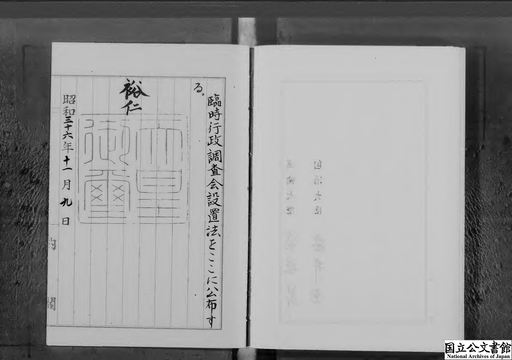 臨時行政調査会設置法をここに公布す
る。
裕仁
天皇
御璽
昭和三十六年十一月九日
内閣
自治大臣
国立公文書館
National Archives of Japan